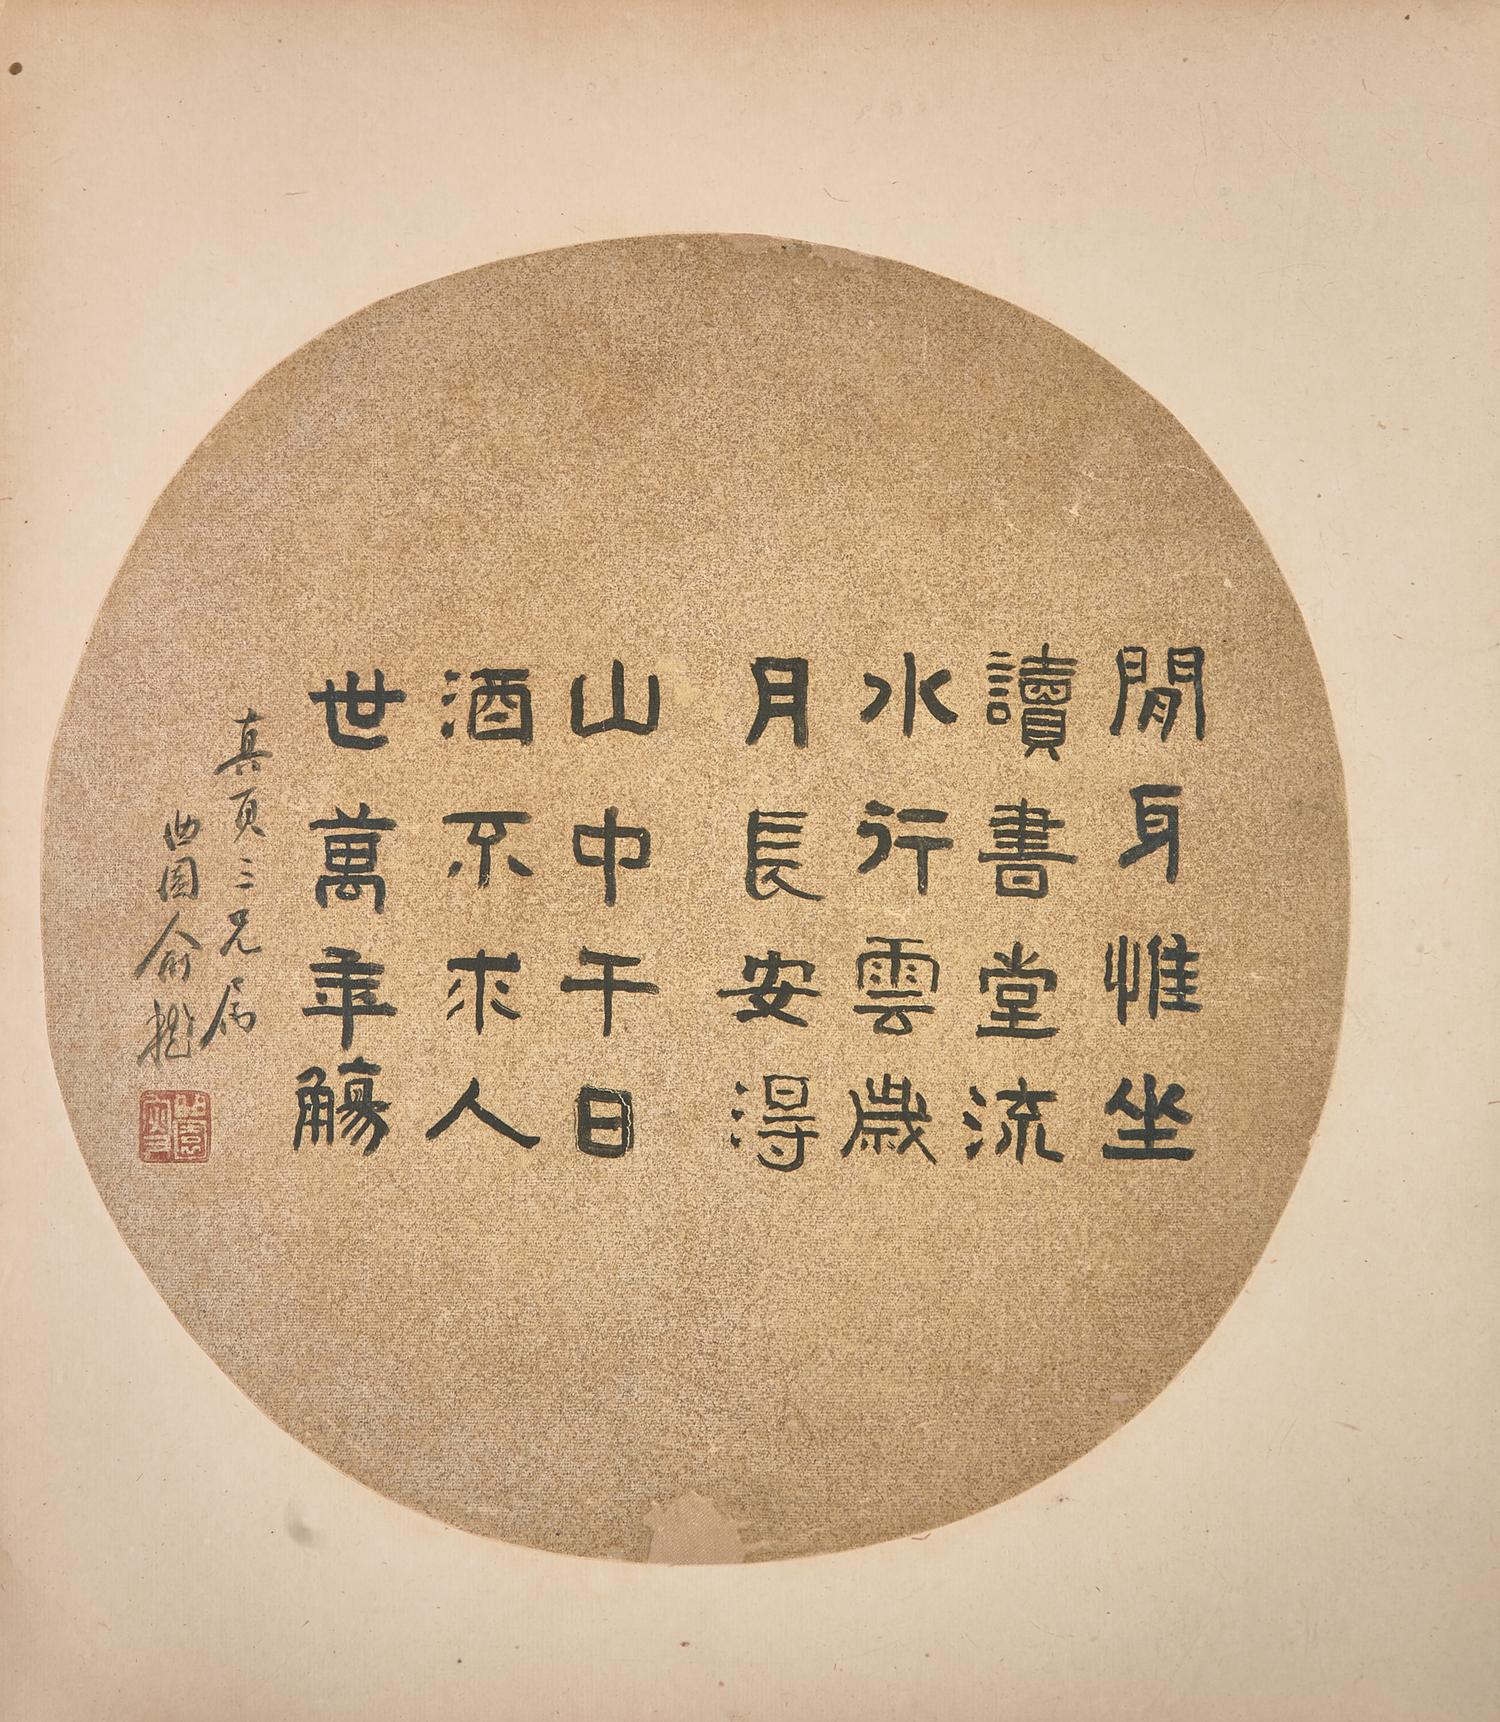 閒身惟坐
讀書堂流
水行雲歲
月長安得
山中千日
酒不求人
世萬年觴
真頁三兄屬
曲園俞樾